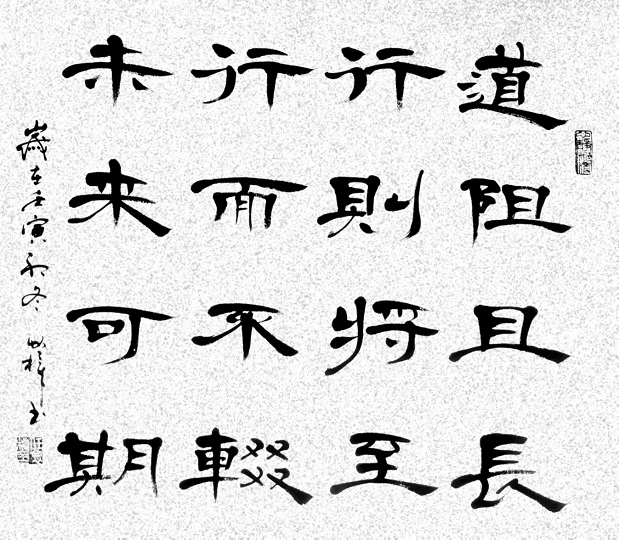 道阻且長
行則將至
行而不輟
未來可期
歲在壬寅初冬
書